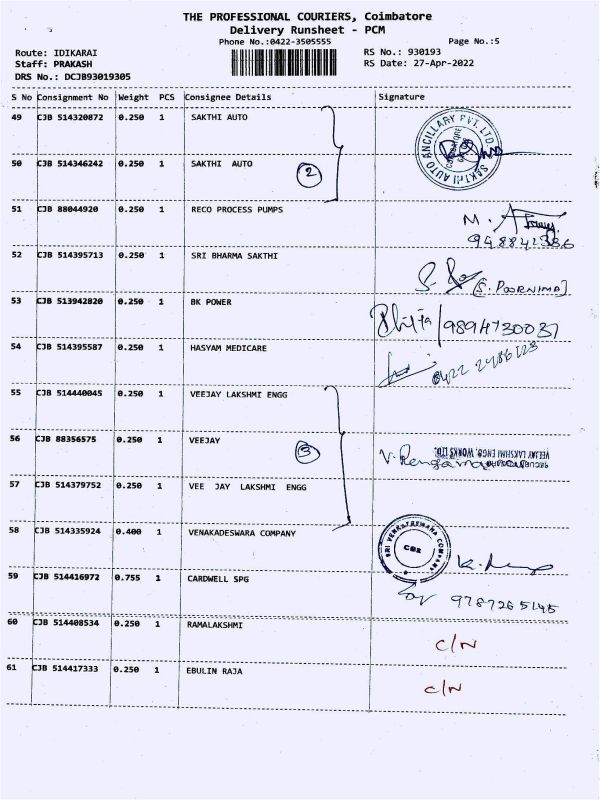 THE PROFESSIONAL COURIERS, Coimbatore
Delivery Runsheet - PCM
Phone No.:0422-3505555 Page No.:5
Route: IDIKARAI RS No.: 930193
Staff: PRAKASH RS Date: 27-Apr-2022
DRS No.: DCJB93019305
S No Consignment No Weight PCS Consignee Details Signature
49 CJB 514320872 0.250 1 SAKTHI AUTO
SAKTHI AUTO ANCILLARY PVT. LTD.
50 CJB 514346242 0.250 1 SAKTHI AUTO
2
51 CJB 88044920 0.250 1 RECO PROCESS PUMPS M.
52 CJB 514395713 0.250 1 SRI BHARMA SAKTHI
[S. POORNIMA]
53 CJB 513942820 0.250 1 BK POWER
9894730037
54 CJB 514395587 0.250 1 HASYAM MEDICARE
0422 2486123
55 CJB 514440045 0.250 1 VEEJAY LAKSHMI ENGG
56 CJB 88356575 0.250 1 VEEJAY
3
VEEJAY LAKSHMI ENG. WORKS LTD.
57 CJB 514379752 0.250 1 VEE JAY LAKSHMI ENGG
58 CJB 514335924 0.400 1 VENAKADESWARA COMPANY
SRI VENKATESWARA COMPANY
CBE
59 CJB 514416972 0.755 1 CARDWELL SPG
9787265145
60 CJB 514408534 0.250 1 RAMALAKSHMI C/N
61 CJB 514417333 0.250 1 EBULIN RAJA C/N